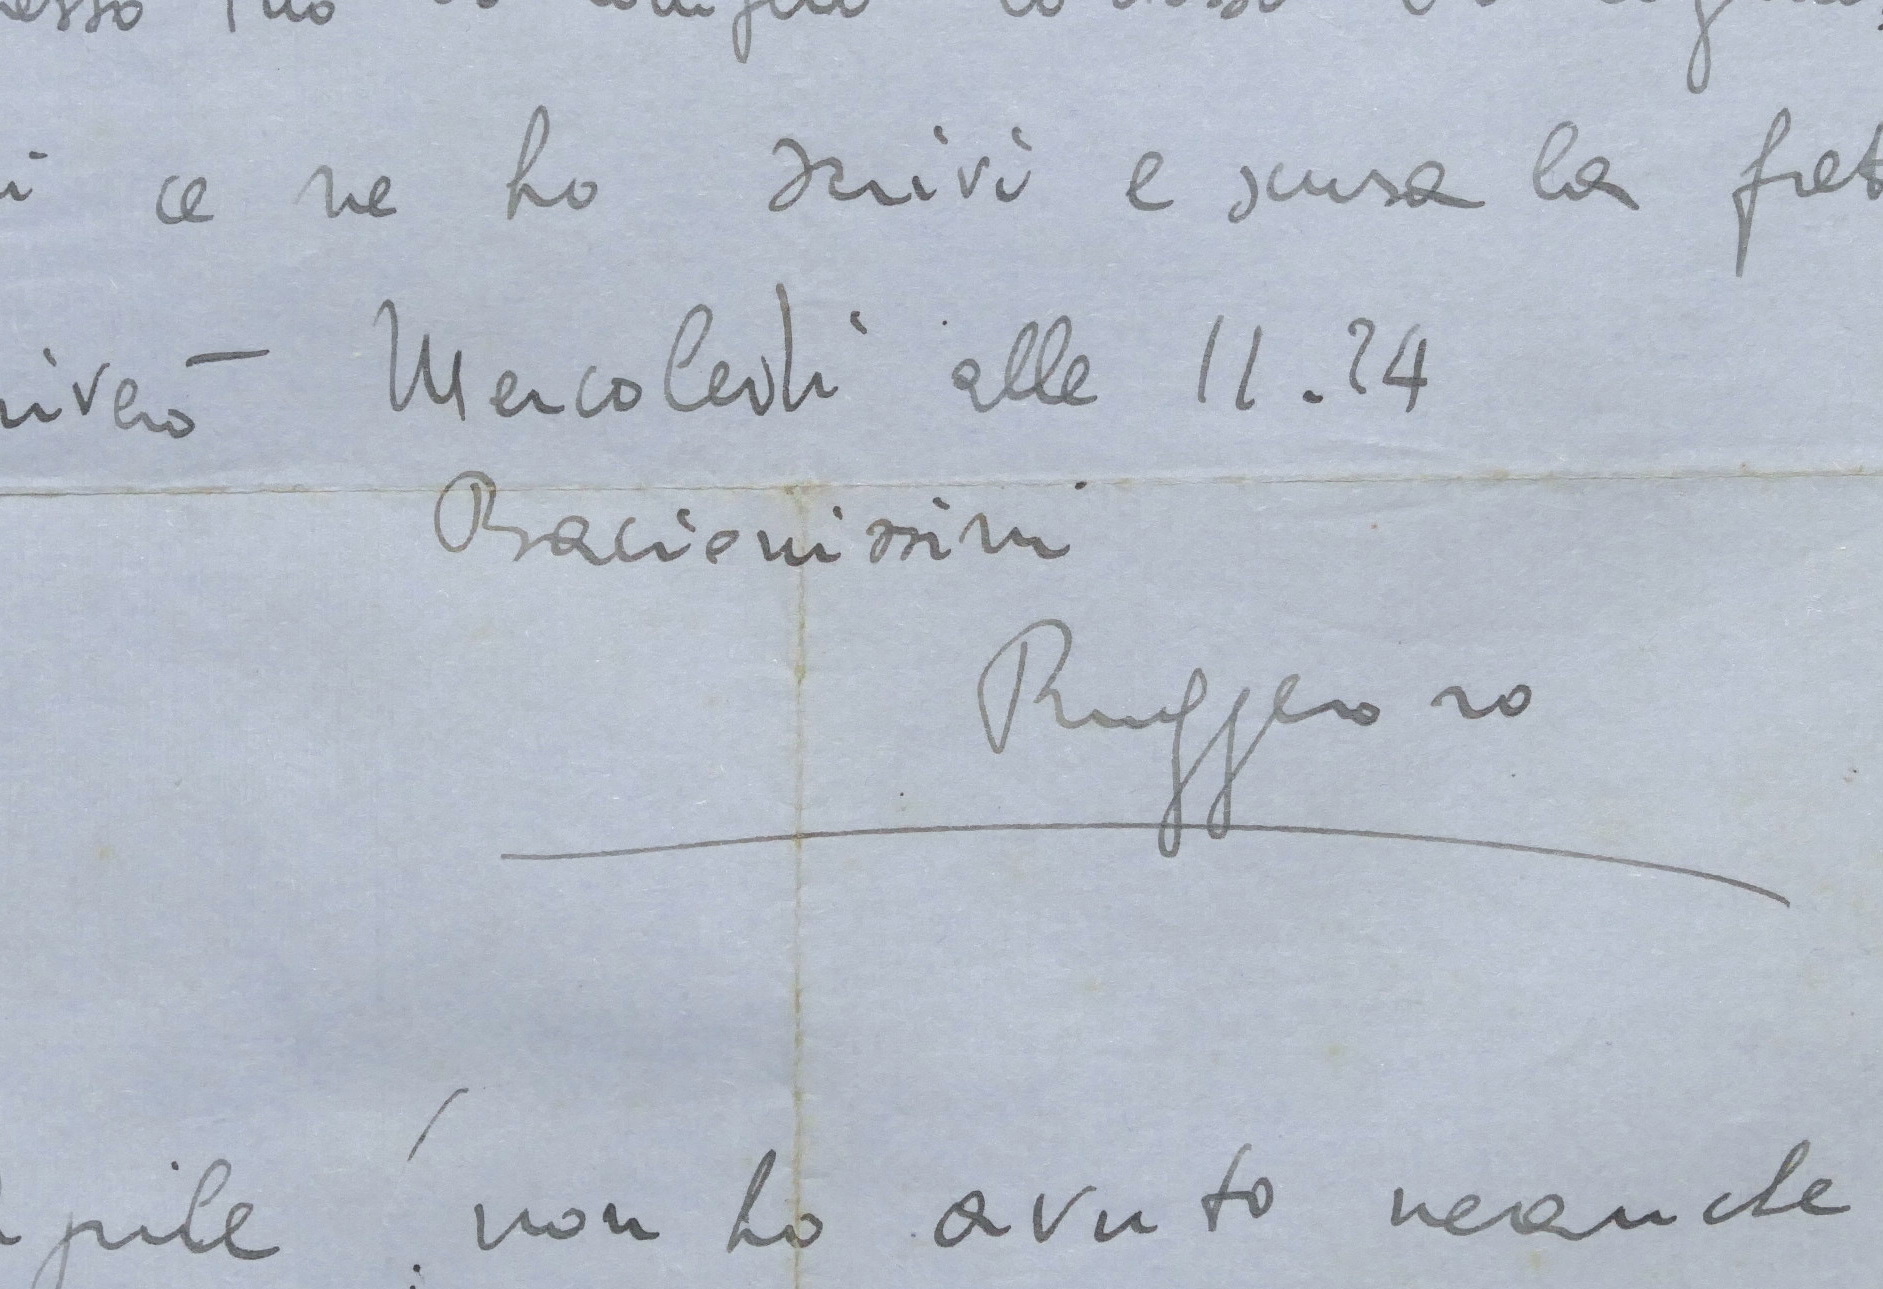 ce ne ho scrivi e scusa la fret
Mercoledì alle 11.24
Bacionissimi
Ruggero
pile non ho avuto neanche